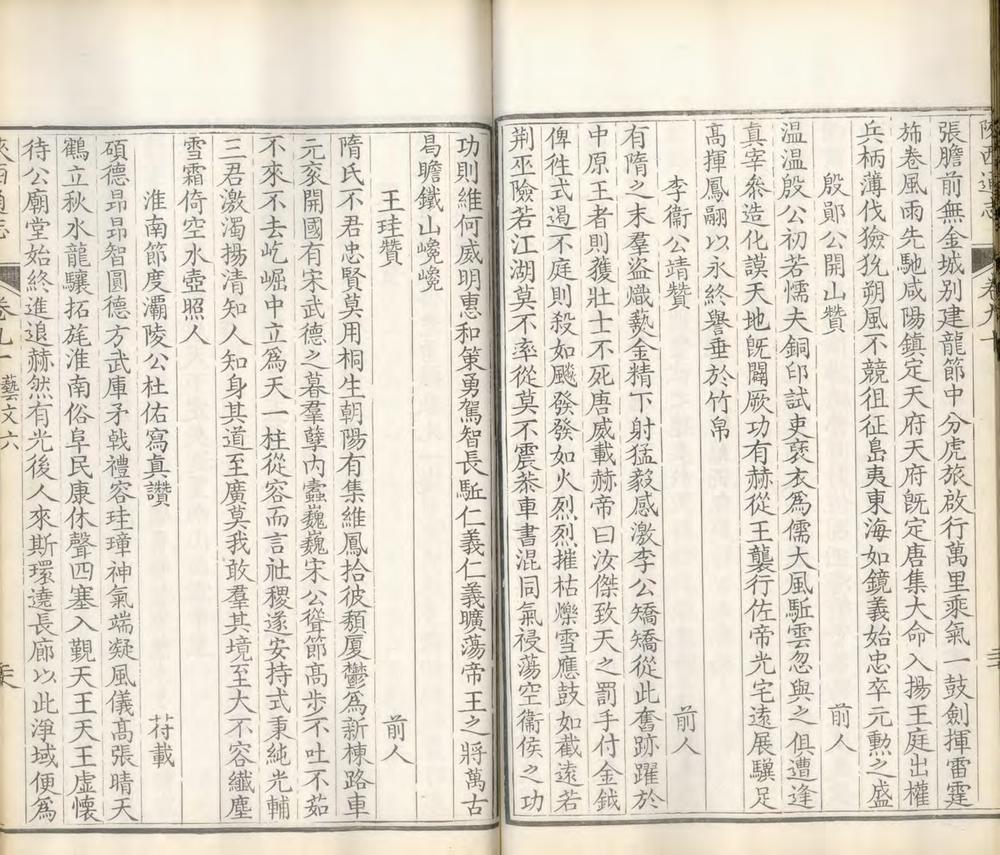 陝西通志
卷九十
張膽前無金城別建龍節中分虎旅啟行萬里乘氣一鼓劍揮雷霆
斾卷風雨先馳咸陽鎮定天府天府旣定唐集大命入揚王庭出權
兵柄薄伐獫狁朔風不競徂征島夷東海如鏡義始忠卒元勲之盛
殷鄖公開山贊 前人
溫溫殷公初若懦夫銅印試吏褒衣爲儒大風駈雲忽與之俱遭逢
真宰叅造化謨天地旣闢厥功有赫從王襲行佐帝光宅遠展驥足
高揮鳳翮以永終譽垂於竹帛
李衞公靖贊 前人
有隋之末羣盜熾爇金精下射猛毅感激李公矯矯從此奮跡躍於
中原王者則獲壯士不死唐威載赫帝曰汝傑致天之罰手付金鉞
俾徃式遏不庭則殺如飈發發如火烈烈摧枯爍雪應鼓如截遠若
荆巫險若江湖莫不率從莫不震恭車書混同氣祲蕩空衞侯之功
功則維何威明惠和策勇駕智長駈仁義仁義曠蕩帝王之將萬古
曷瞻鐵山巉巉
王珪贊 前人
隋氏不君忠賢莫用桐生朝陽有集維鳳拾彼頹厦鬱爲新棟路車
元衮開國有宋武德之暮羣孽內蠹巍巍宋公聳節高步不吐不茹
不來不去屹崛中立爲天一柱從容而言社稷遂安持式秉純光輔
三君激濁揚清知人知身其道至廣莫我敢羣其境至大不容纖塵
雪霜倚空水壺照人
淮南節度灞陵公杜佑寫真讚 苻載
碩德昻昻智圓德方武庫矛戟禮容珪璋神氣端凝風儀高張晴天
鶴立秋水龍驤拓旄淮南俗阜民康休聲四塞入覲天王天王虛懷
待公廟堂始終進退赫然有光後人來斯環遶長廊以此淨域便爲
卷九十 藝文六